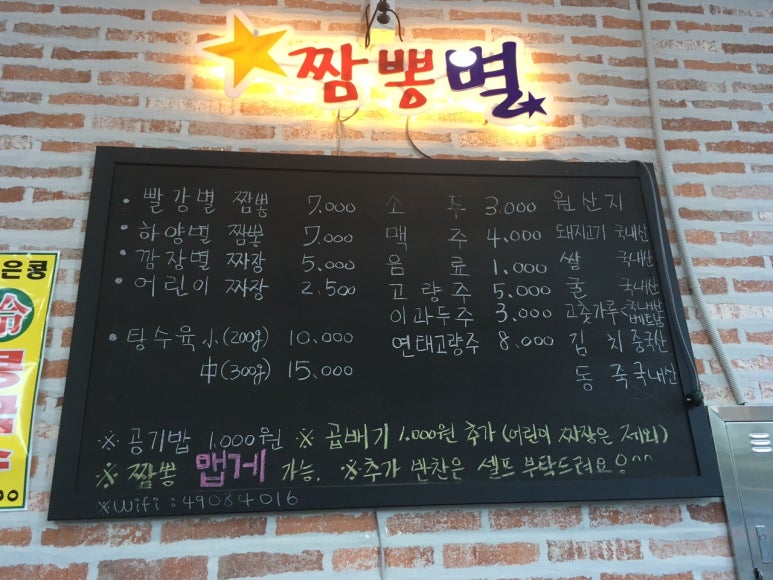 짬뽕별
빨강별 짬뽕 7.000
하양별 짬뽕 7.000
깜장별 짜장 5.000
어린이 짜장 2.500
탕수육 小(200g) 10.000
中(300g) 15.000
소주 3.000
맥주 4.000
음료 1.000
고량주 5.000
이과두주 3.000
연태고량주 8.000
원산지
돼지고기 국내산
쌀 국내산
굴 국내산
고춧가루 < 국내산 베트남
김치 중국산
동죽 국내산
※ 공기밥 1.000원 ※ 곱배기 1.000원 추가 (어린이 짜장은 제외)
※ 짬뽕 맵게 가능. ※추가 반찬은 셀프 부탁드려요^^
※Wifi : 49084016
은콩
冷